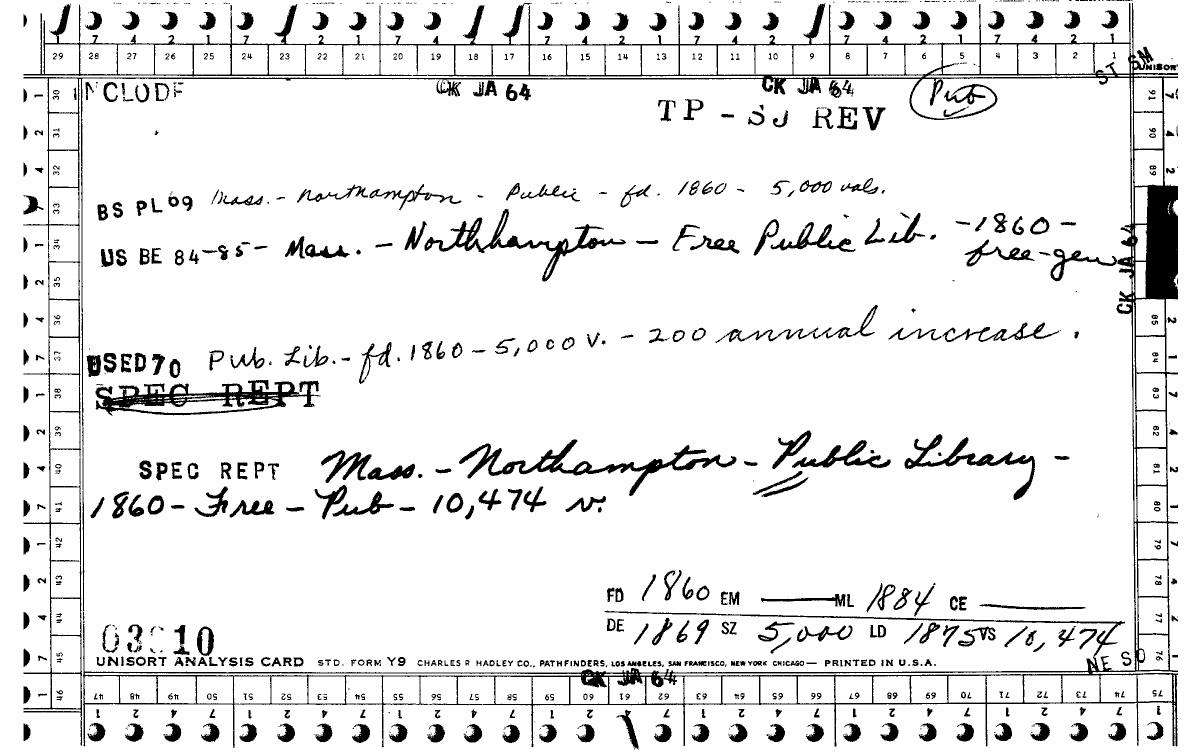 7 4 2 1 7 4 2 1 7 4 2 1 7 4 2 1 7 4 2 1
29 28 27 26 25 24 23 22 21 20 19 18 17 16 15 14 13 12 11 10 9 8 7 6 5 4 3 2 1
ST SM
UNISORT
NCLODE CK JA 64 CK JA 64 Pub
TP - SJ REV
BS PL 69 Mass. - Northampton - Public - fd. 1860 - 5,000 vols.
US BE 84-85 - Mass. - Northhampton - Free Public Lib. - 1860 -
free-gen
CK JA 64
USED 70 Pub. Lib. - fd. 1860 - 5,000 v. - 200 annual increase.
SPEC REPT
SPEC REPT Mass. - Northampton - Public Library -
1860 - Free - Pub - 10,474 v.
FD 1860 EM ML 1884 CE
DE 1869 SZ 5,000 LD 1875 VS 10,474
UNISORT ANALYSIS CARD STD. FORM Y9 CHARLES R HADLEY CO., PATHFINDERS, LOS ANGELES, SAN FRANCISCO, NEW YORK CHICAGO — PRINTED IN U.S.A.
NE SO
CK JA 64
47 48 49 50 51 52 53 54 55 56 57 58 59 60 61 62 63 64 65 66 67 68 69 70 71 72 73 74 75